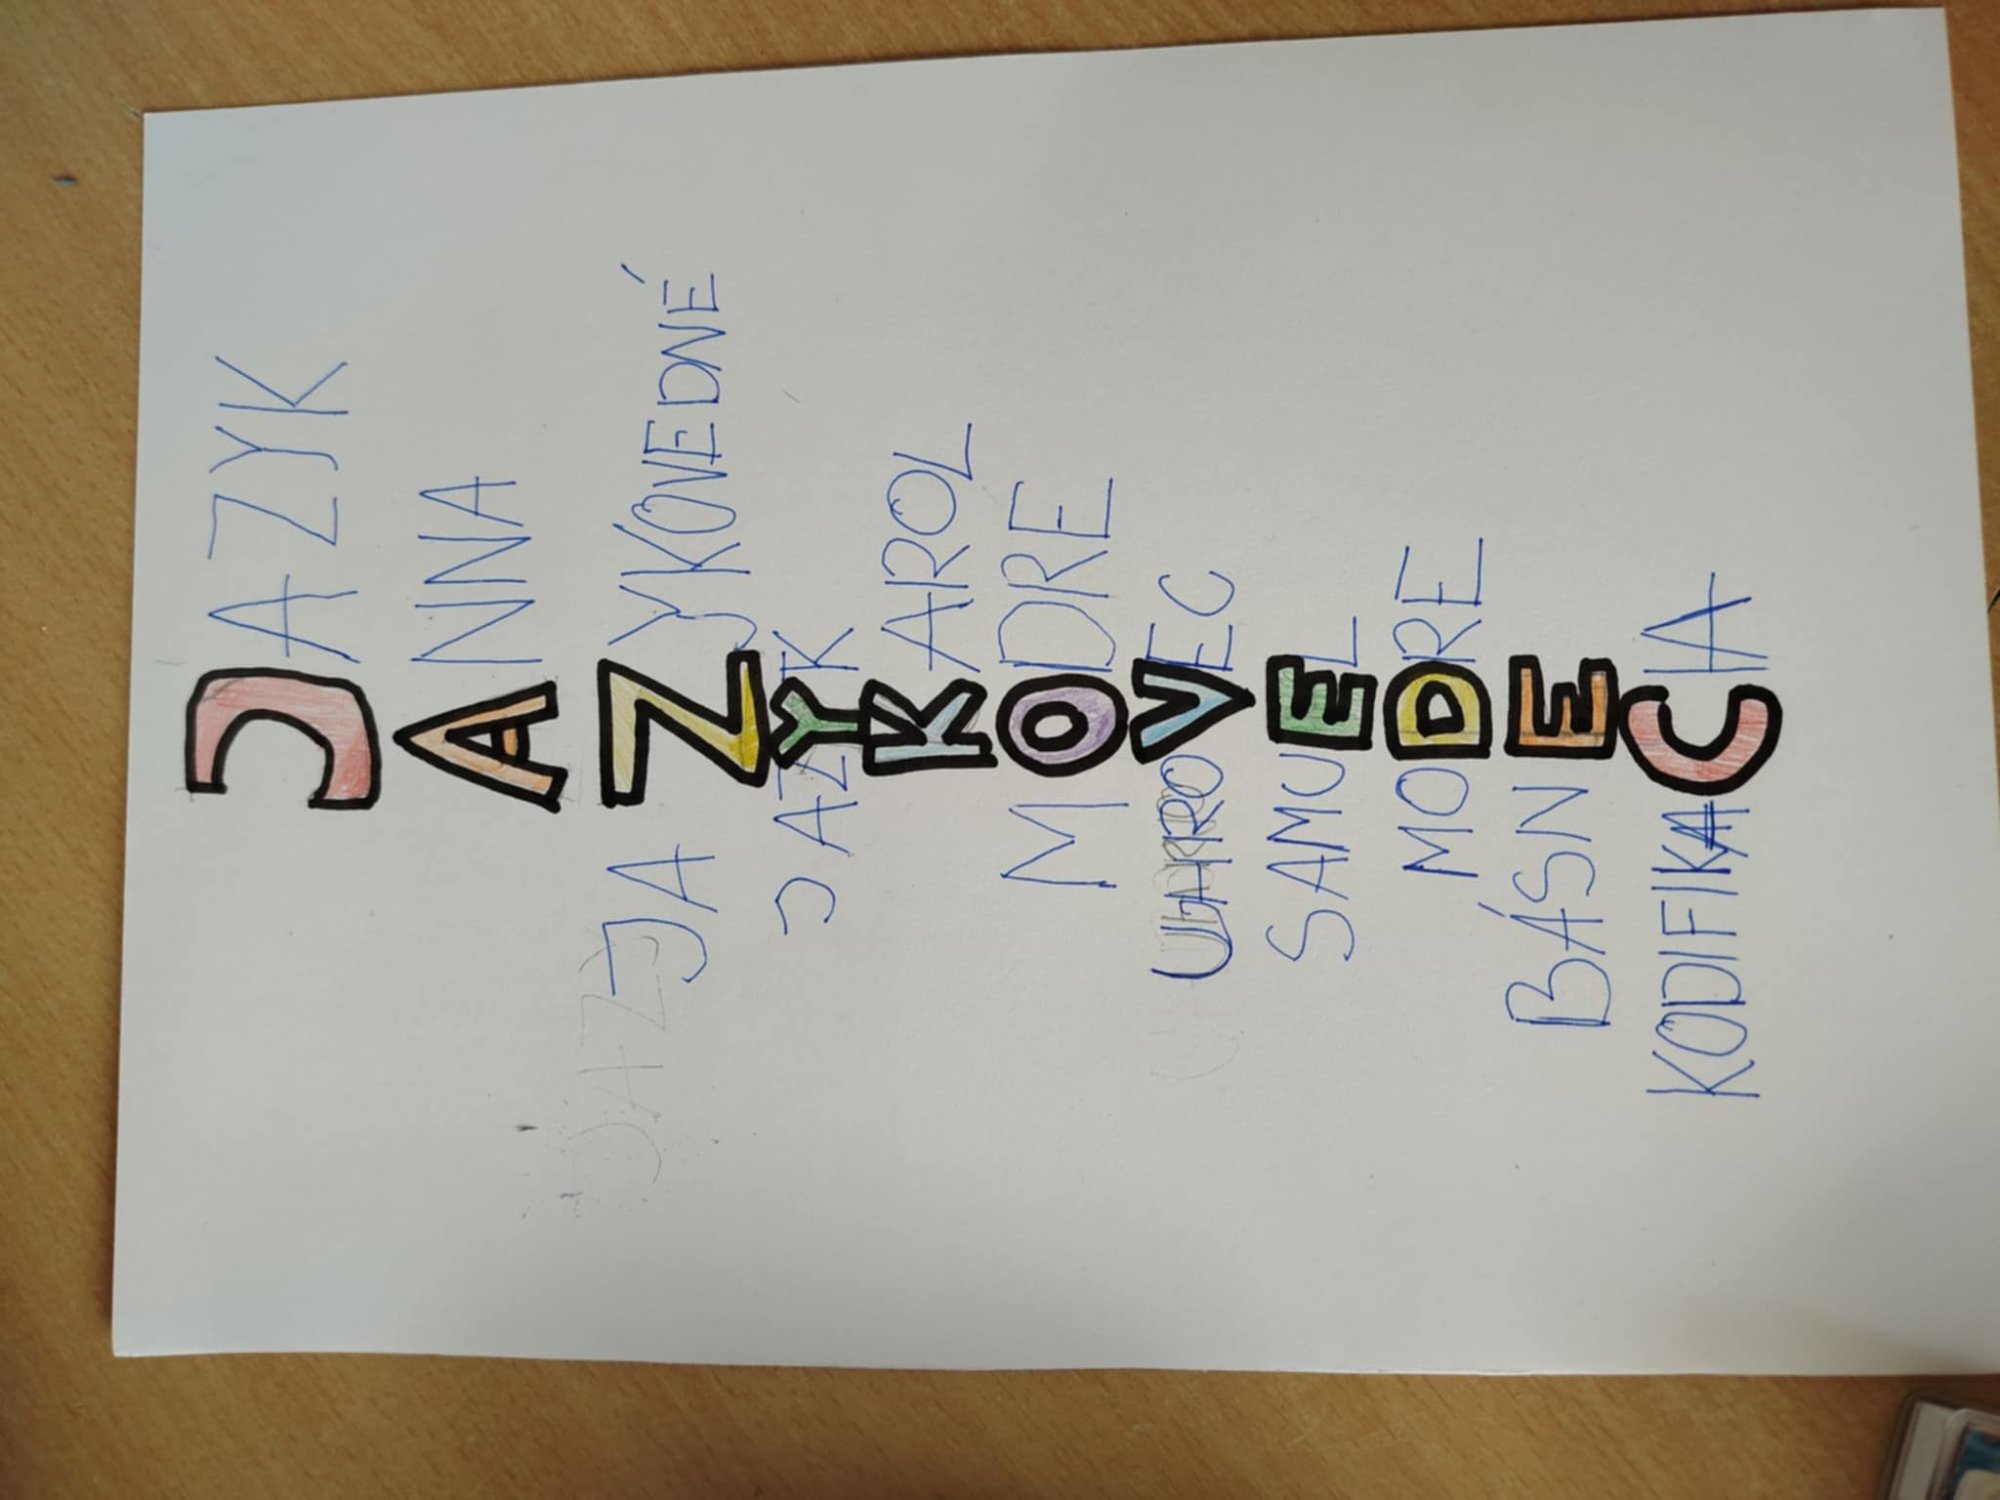 JAZYK
ANNA
JAZYKOVEDNÉ
JAZYK
KAROL
MODRE
UHROVEC
SAMUEL
MODRE
BÁSNE
KODIFIKACIA